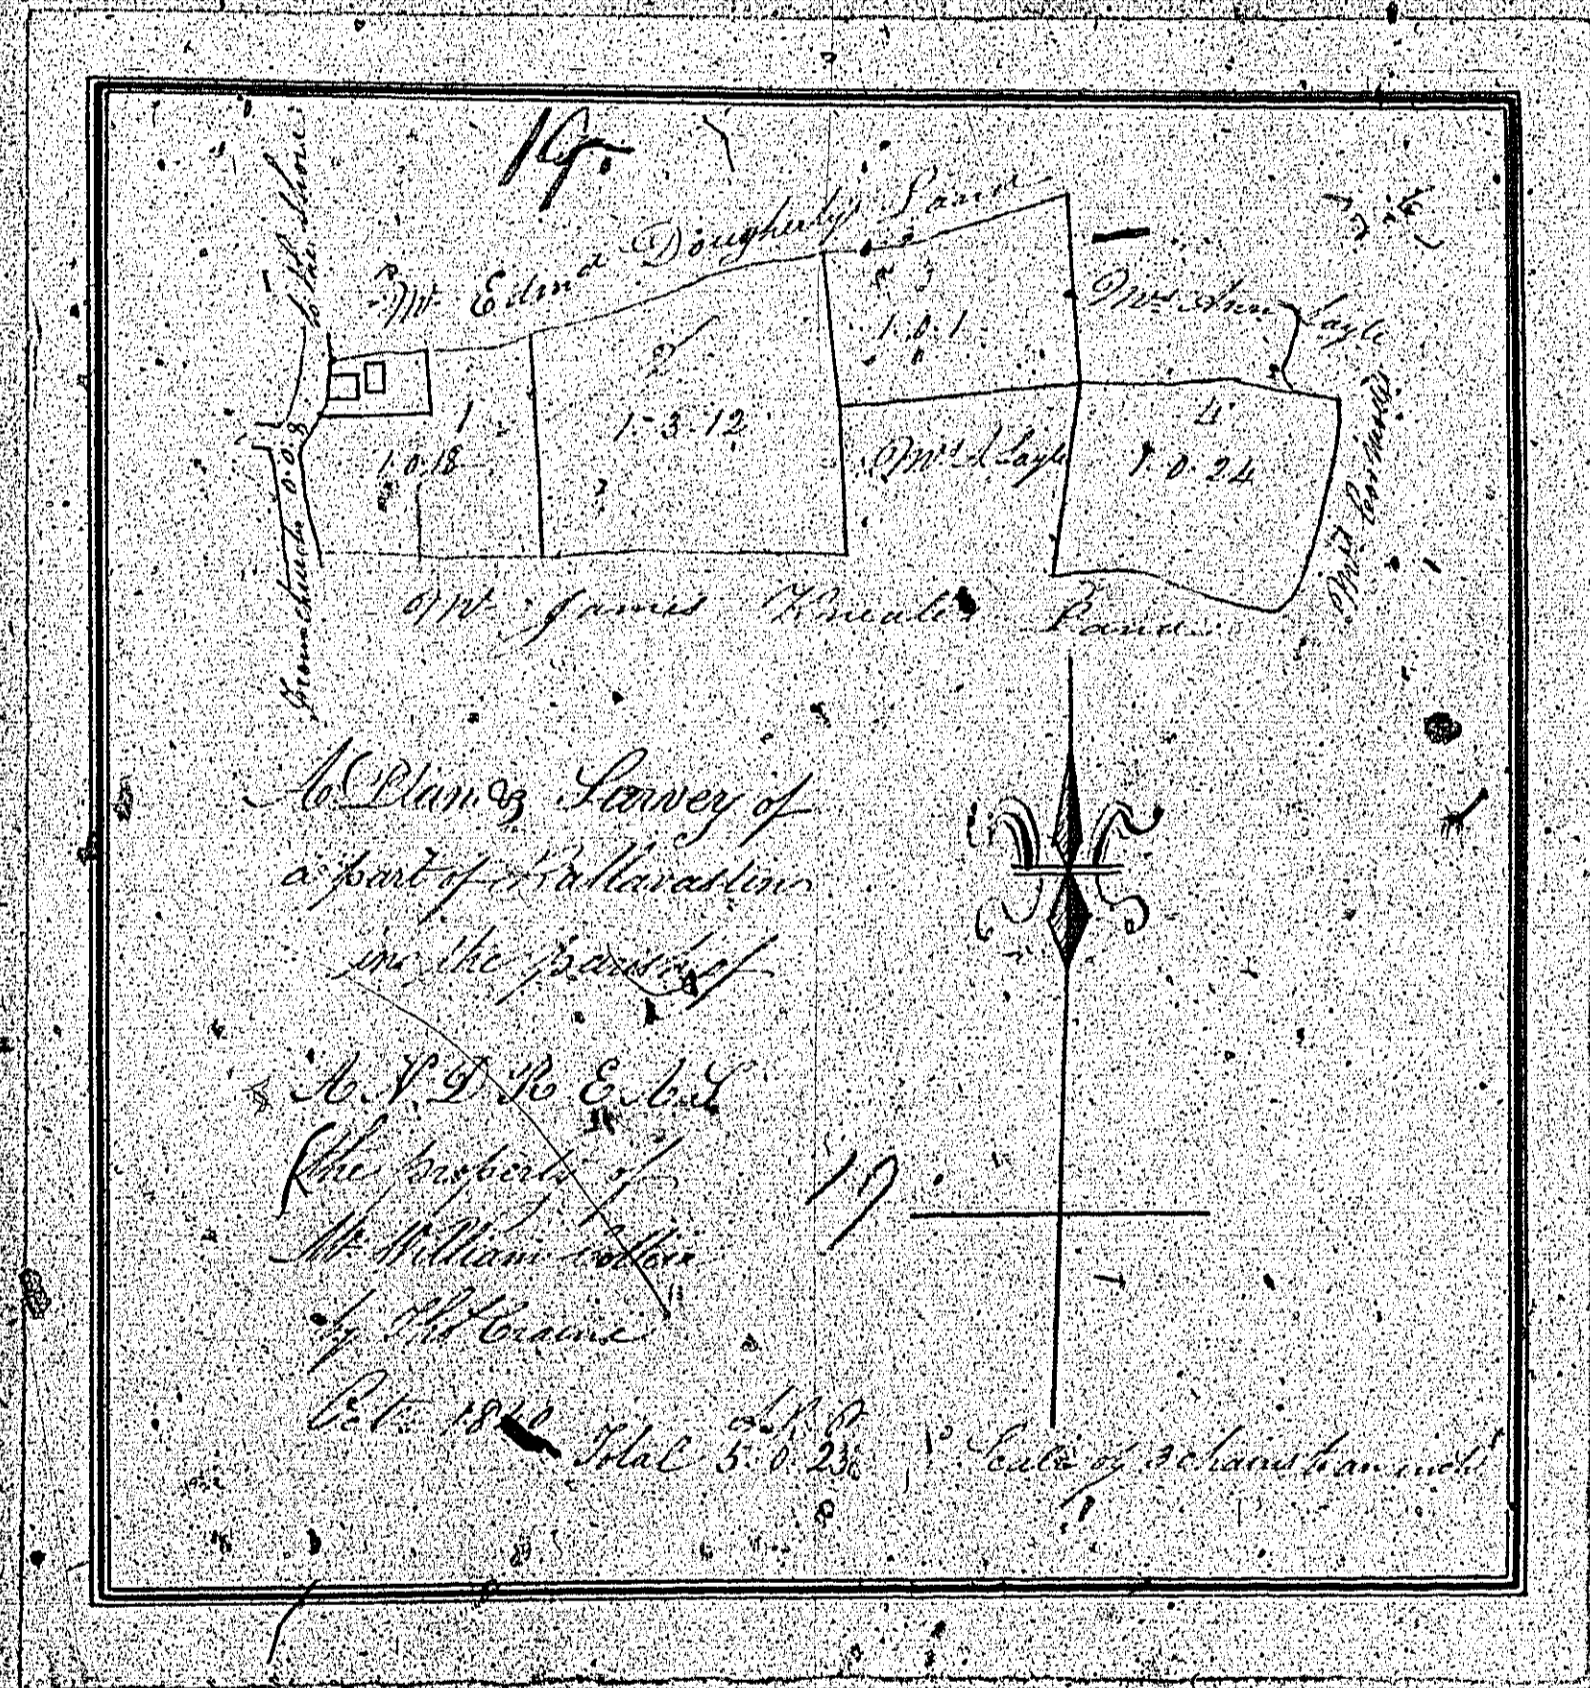 to the Shore
Mr. Edmd Dougherty's Land
3
1.0.1
Mrs Ann Cayle
2
1-3-12
1
1.0.18
0.0.8
Mrs A Cayle
4
1.0.24
From church
Mr James Kneale's Land
A Plan & Survey of
a part of Ballavastin
in the parish of
ANDREAS
the property of
Mr William
by Thos Craine
Oct 18
A.R.P
Total 5.0.23
Scale of 3 chains to an inch